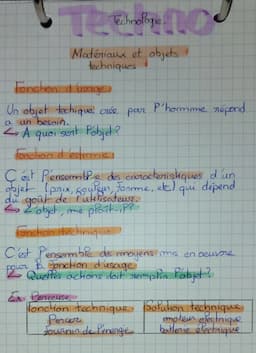 Techno
Technologie
Matériaux et objets
techniques
Fonction d'usage
Un objet technique crée par l'homme répond
a un besoin.
↳ A quoi sert l'objet?
Fonction d'estime
C'est l'ensemble des caractéristiques d'un
objet (prix, couleur, forme, etc) qui dépend
du goût de l'utilisateur.
↳ L'objet, me plait-il?
Fonction technique
C'est l'ensemble des moyens mis en oeuvre
pour la fonction d'usage
↳ Quelles actions doit remplir l'objet?
Ex: Perceuse
Fonction technique Solution technique
Percer moteur électrique
fournir de l'énergie batterie électrique